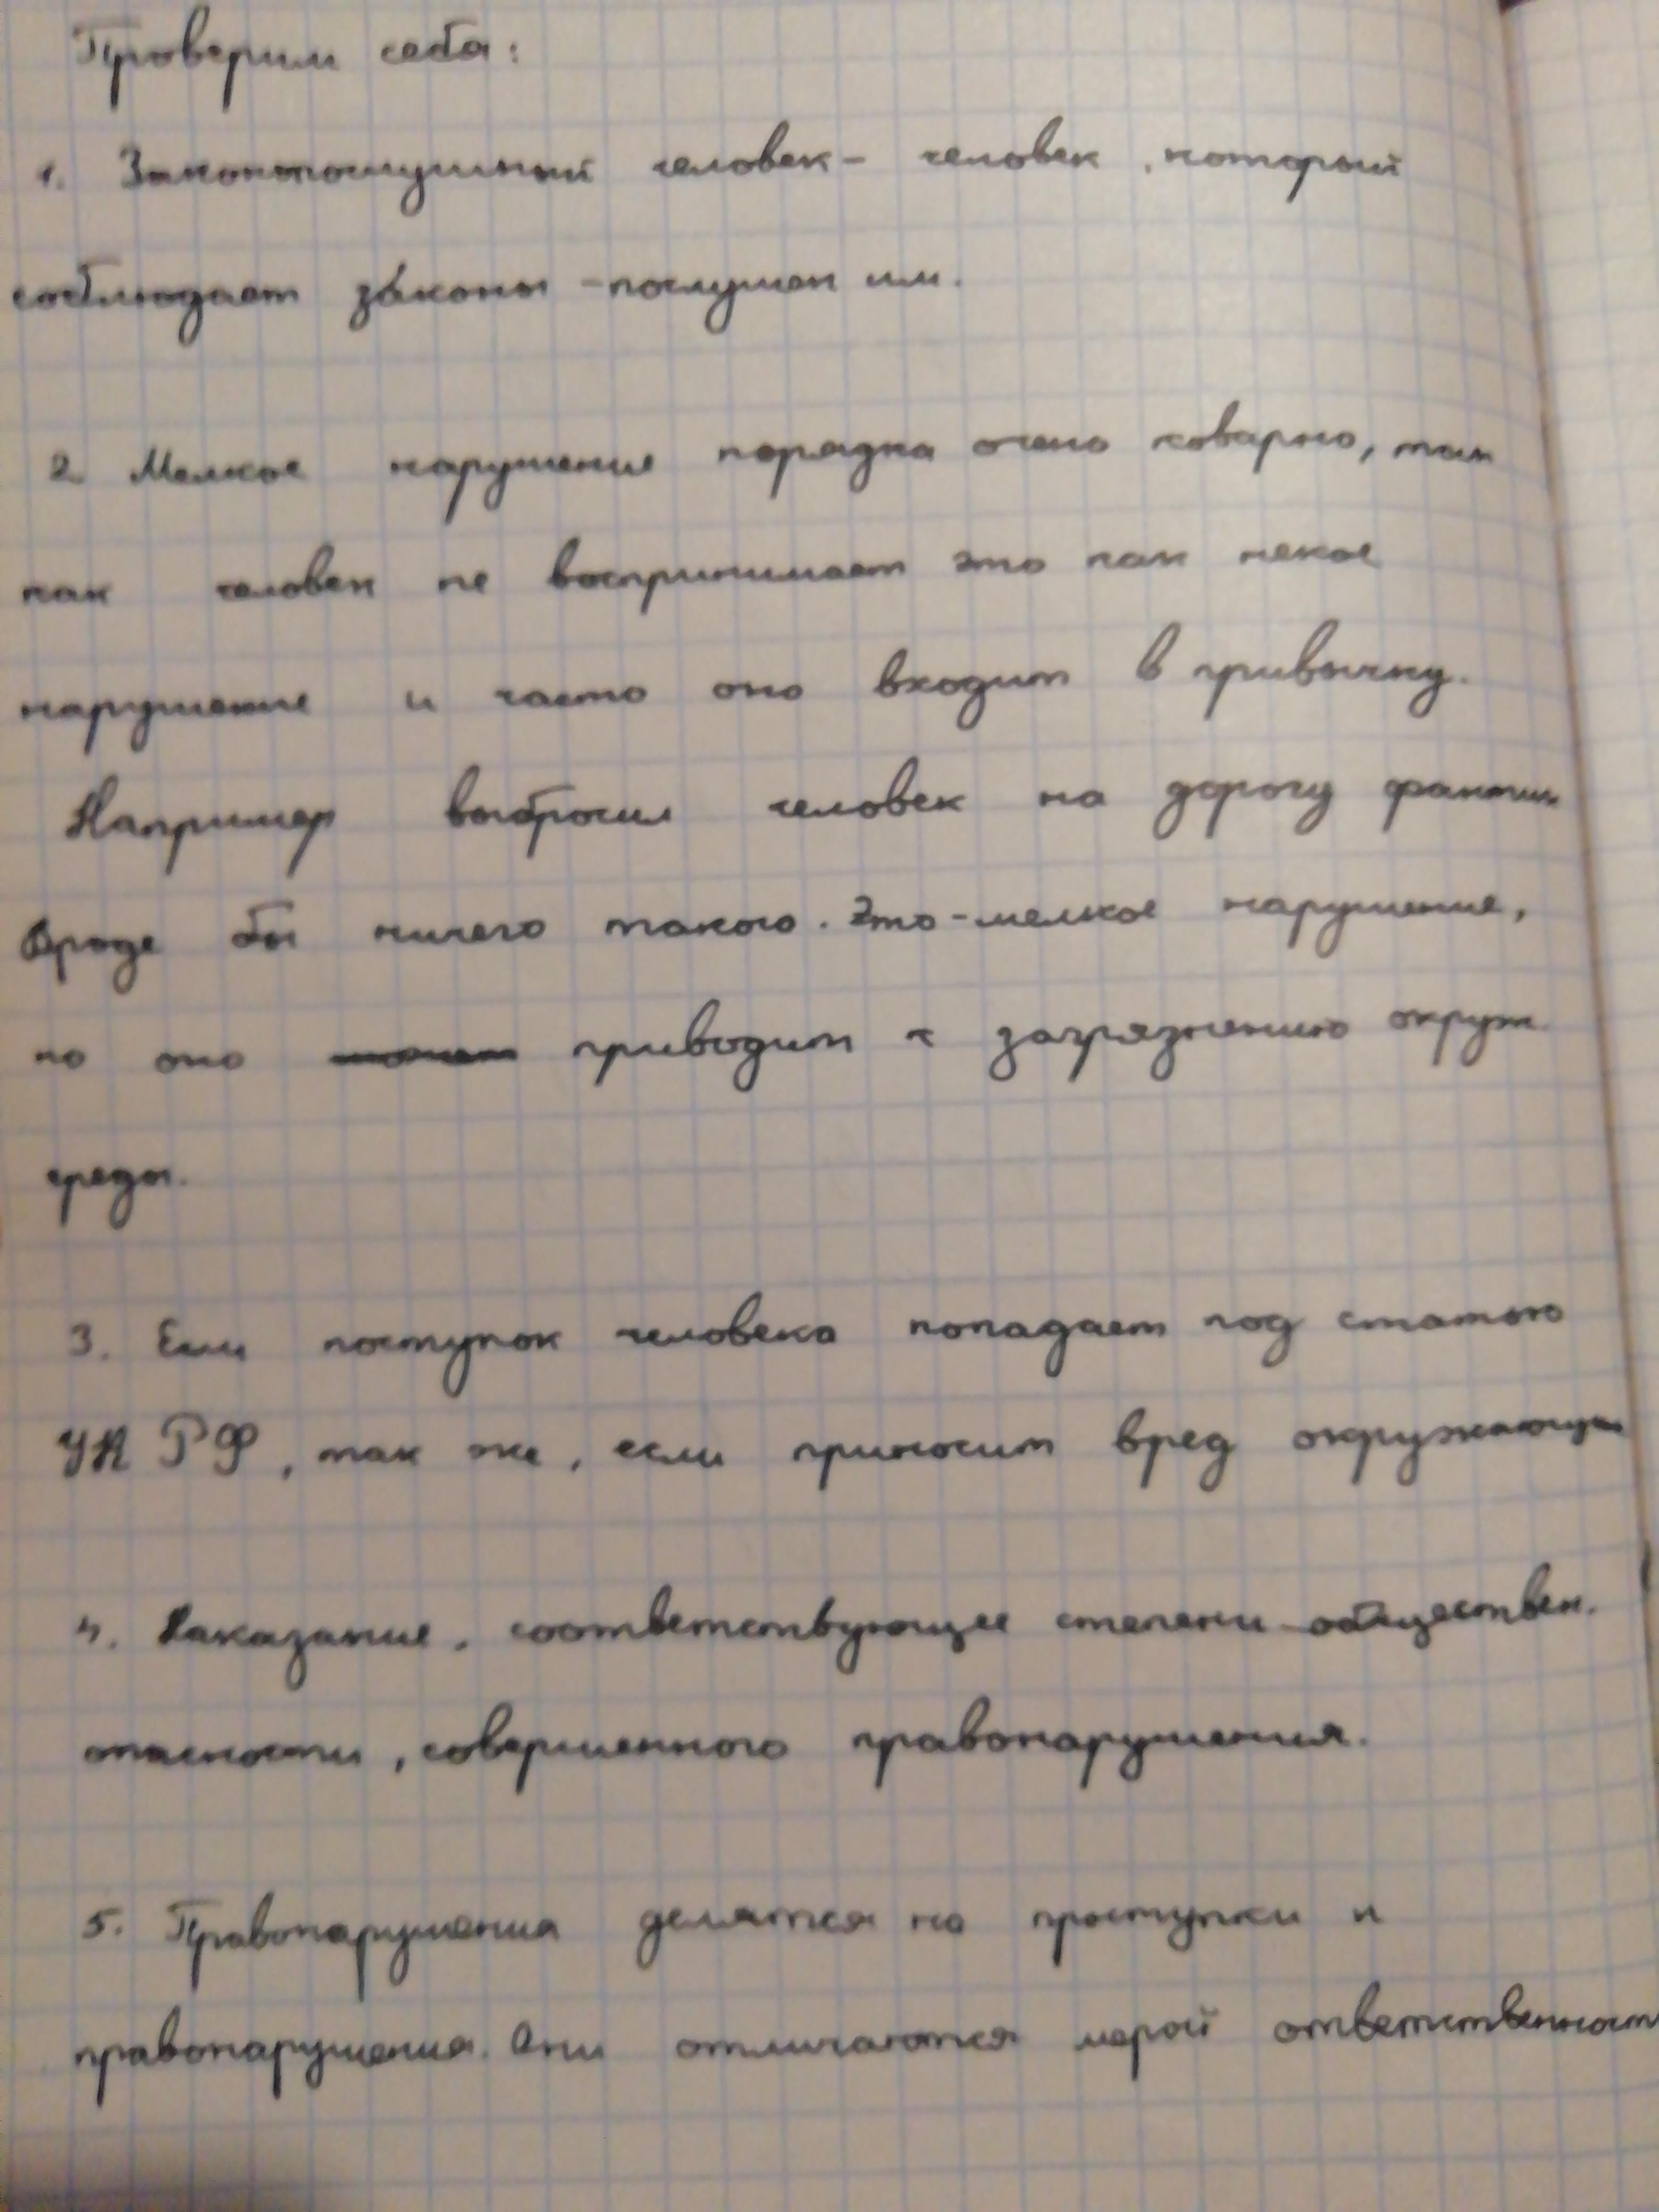 Проверим себя:
1. Законопослушный человек - человек, который
соблюдает законы - послушен им.
2. Мелкое нарушение порядка очень коварно, так
как человек не воспринимает это как некое
нарушение и часто оно входит в привычку.
Например выбросил человек на дорогу фантик
Вроде бы ничего такого. Это - мелкое нарушение,
но оно приводит к загрязнению окруж.
среды.
3. Если поступок человека попадает под статью
УК РФ, так же, если приносит вред окружающим
4. Наказание, соответствующее степени обществен.
опасности, совершенного правонарушения.
5. Правонарушения делятся на проступки и
правонарушения. Они отличаются мерой ответственност